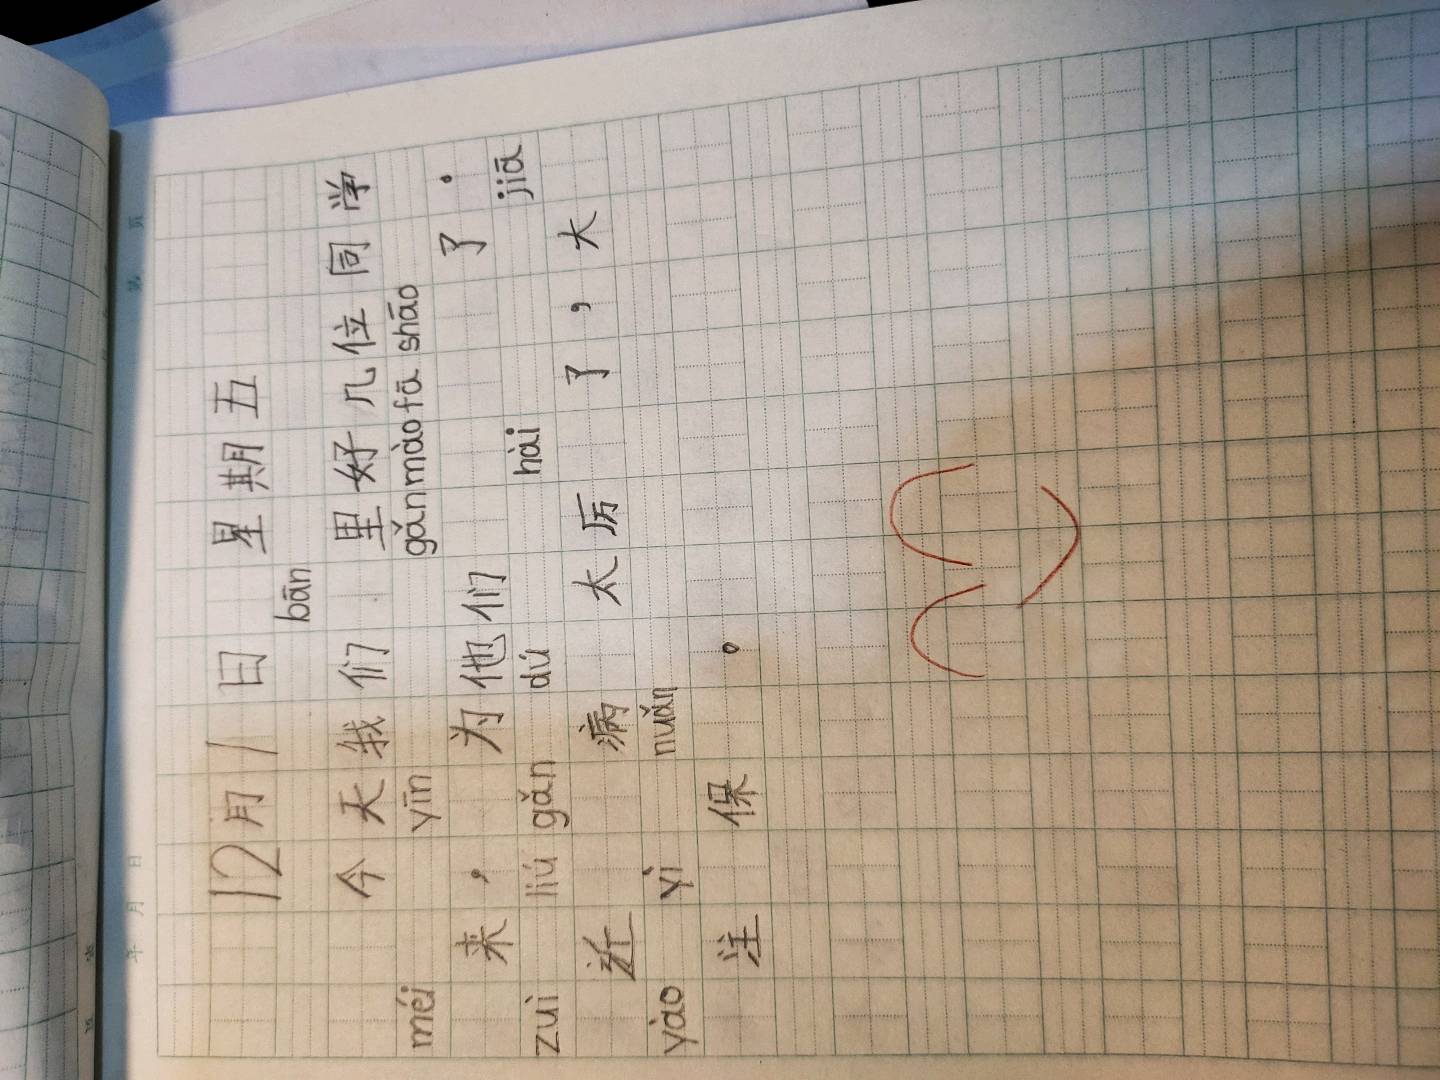 年 月 日 第 页
12月1日 星期五
bān
今天我们 里好几位同学
méi yīn gǎn mào fā shāo
来，为他们 了.
zuì liú gǎn dú hài jiā
近 病 太厉 了，大
yào yì nuǎn
注 保 。